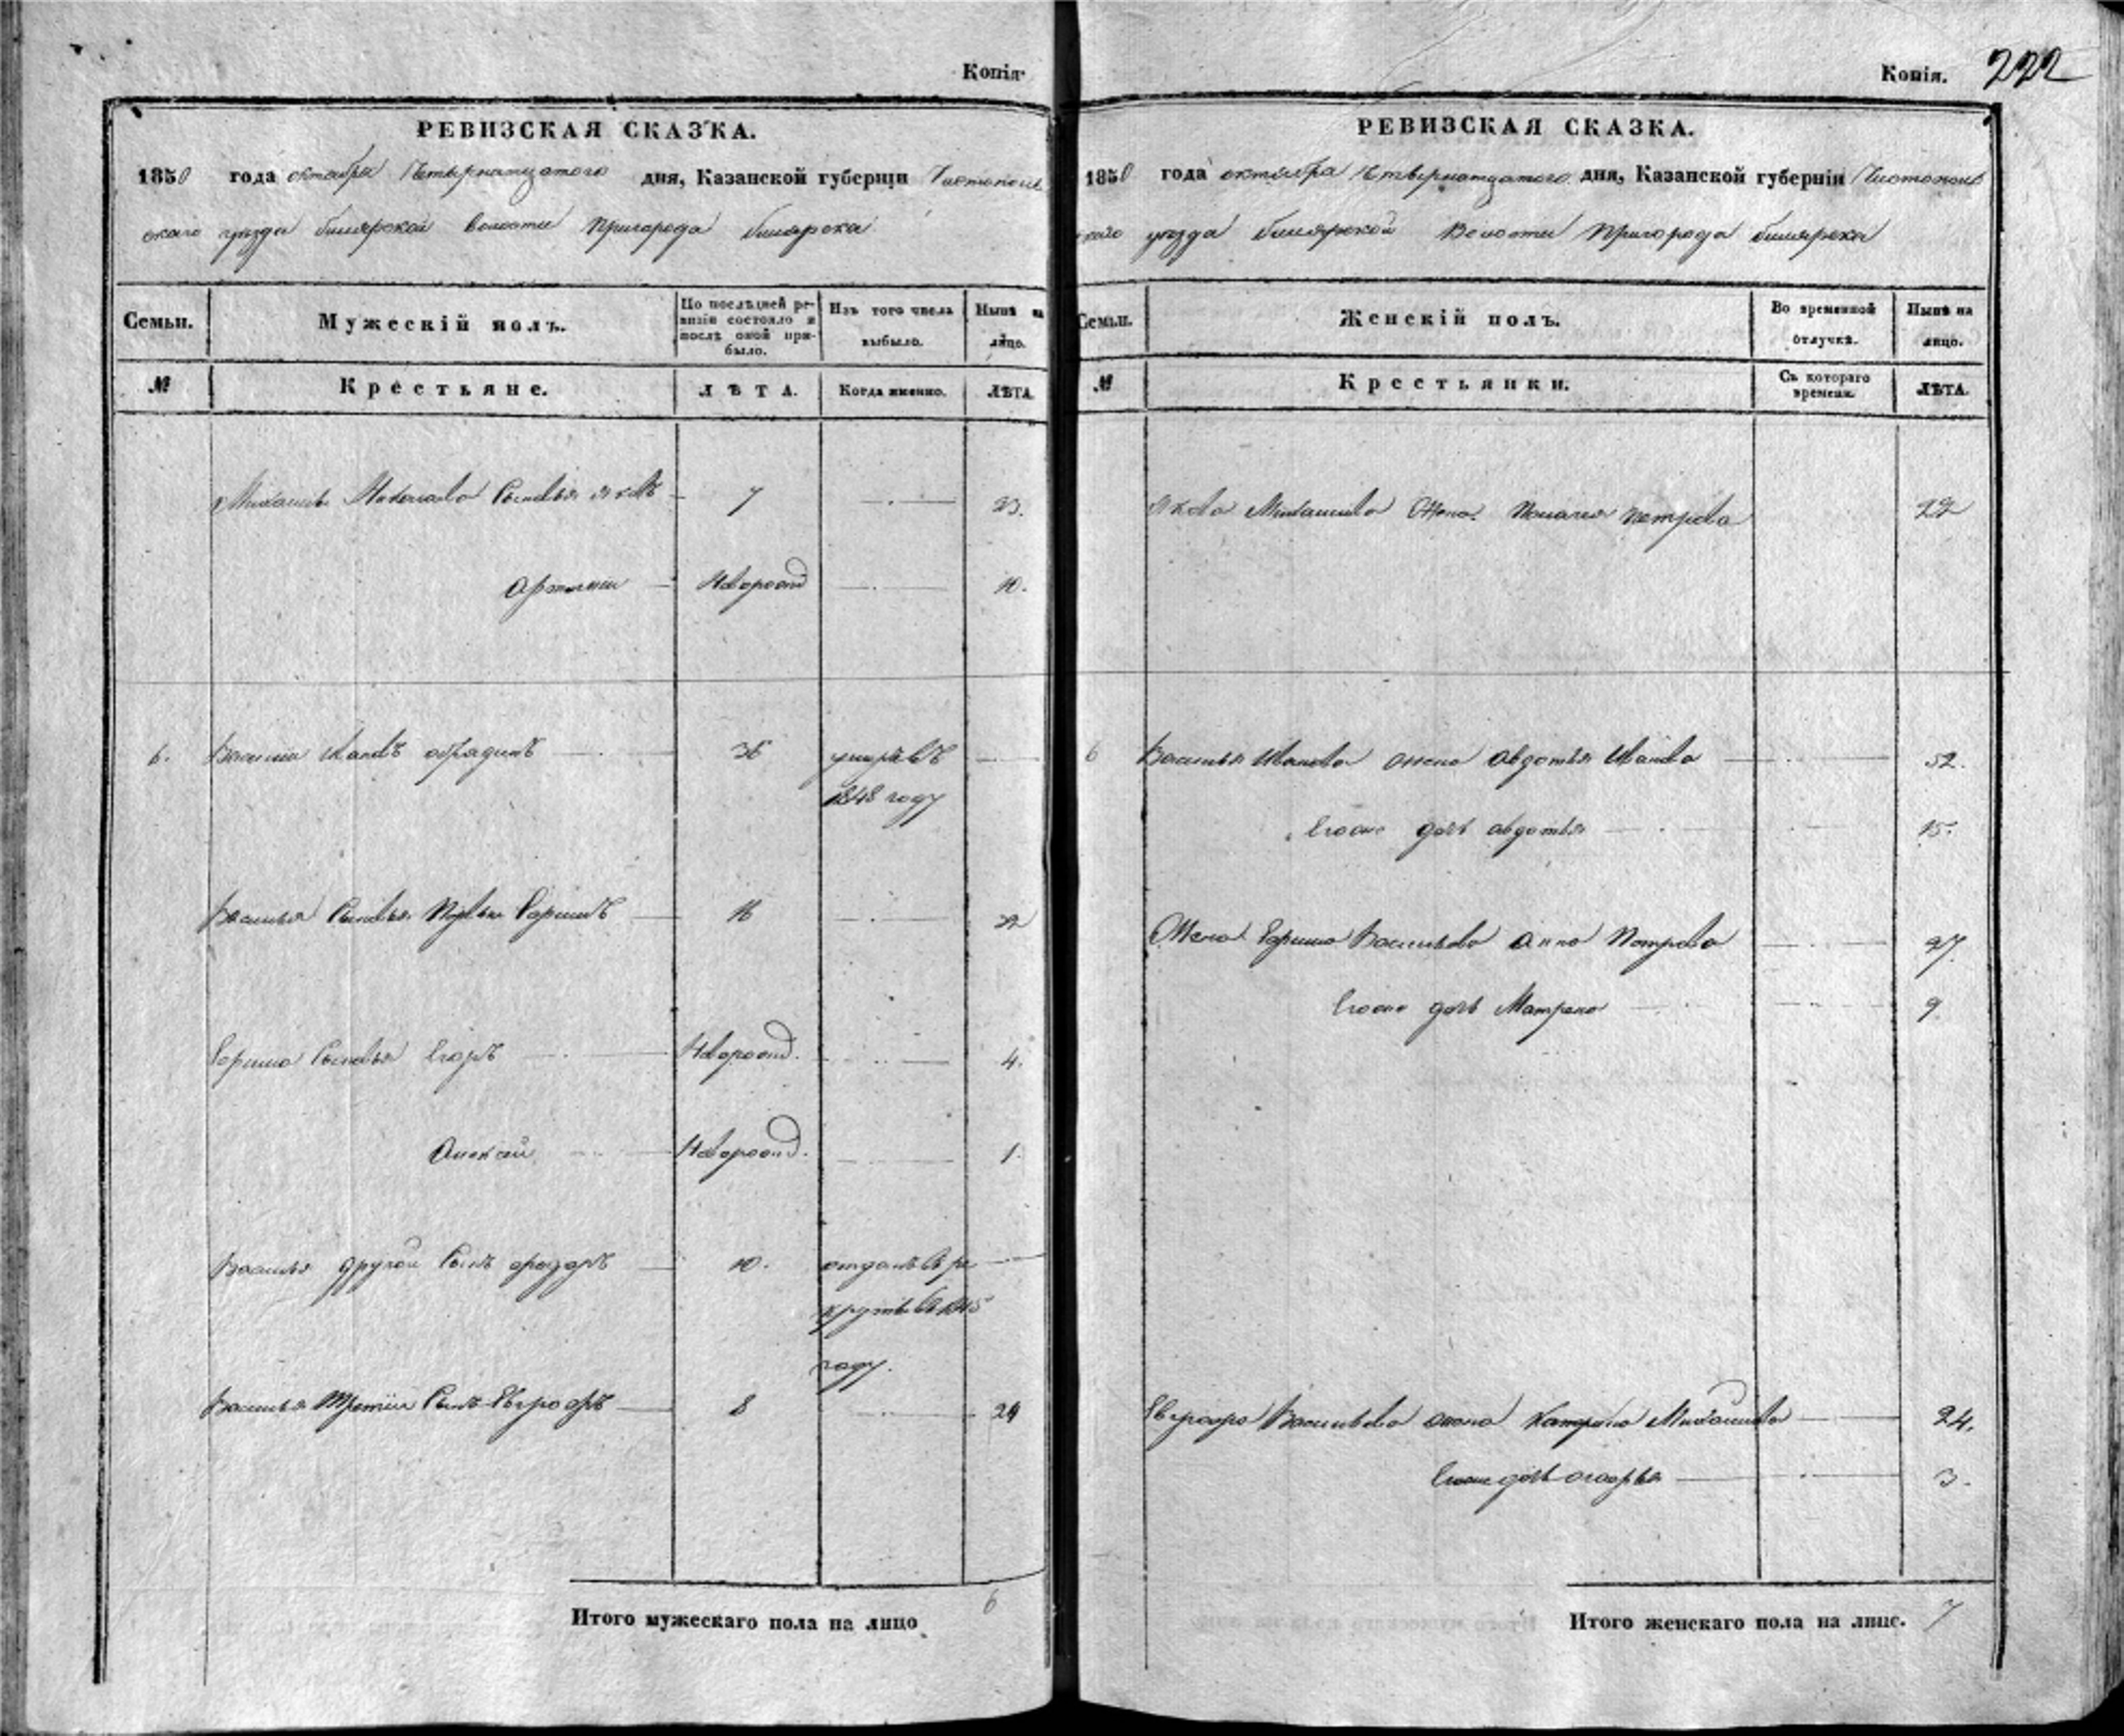 Копія
РЕВИЗСКАЯ СКАЗКА.
1850 года октября Четырнатцатого дня, Казанской губерніи Чистополь
скаго уезда билярской волости Пригорода билярска
Семьи.
Мужескій полъ.
По послѣдней ре-
визіи состояло и
послѣ оной при-
было.
Изъ того числа
выбыло.
Нынѣ на
лицо.
№
Крестьяне.
ЛѢТА.
Когда именно.
ЛѢТА.
Сыновья яковъ 7 23.
Новорожд 10.
6. Василий Ивановъ 36 умре въ
1848 году
Василья Сыновья Первый 16
Сыновья Егоръ Новорожд. 4.
Алексей Новорожд. 1.
Василья другой Сынъ 10. отданъ въ ре
круты в 1845
году.
Василья Третий Сынъ 8 24
Итого мужескаго пола на лицо 6
Копія. 222
РЕВИЗСКАЯ СКАЗКА.
1850 года октября Четвернатцатого дня, Казанской губерніи Чистополь
скаго уезда билярской Волости Пригорода билярска
Семьи.
Женскій полъ.
Во временной
отлучкѣ.
Нынѣ на
лицо.
№
Крестьянки.
Съ котораго
времени.
ЛѢТА.
Якова Михайлова Жена Петрова 22
6 Василья Иванова жена Авдотья Иванова 52.
Ево же дочь авдотья 15.
Жена Васильева Анна Петрова 27.
Ево же дочь Матрена 9
Васильева жена Катерина Михайлова 24.
Ево же дочь 3.
Итого женскаго пола на лицо. 7